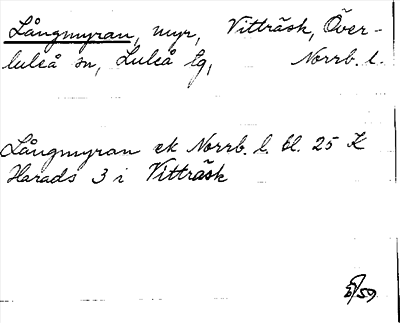 Långmyran, myr, Vitträsk, Över-
luleå sn, Luleå tg, Norrb. l.
Långmyran ek Norrb. l. bl. 25 K
Harads 3 i Vitträsk
/59